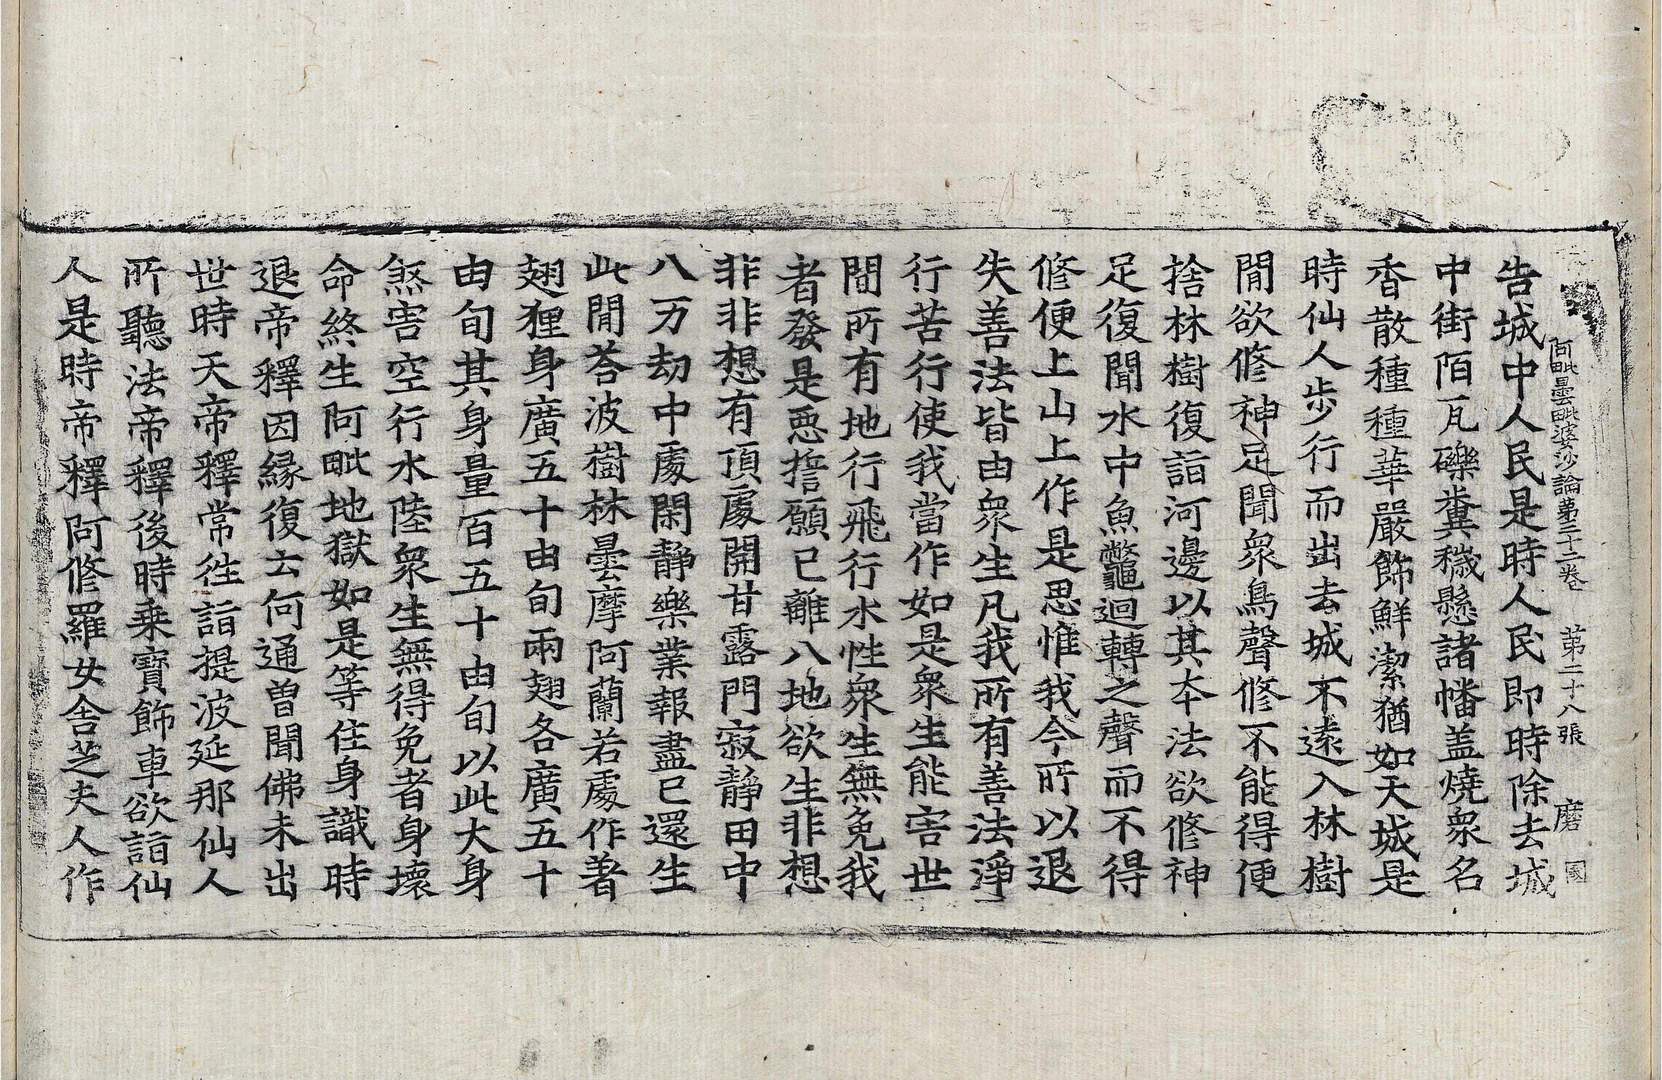 阿毗曇毗婆沙論第三十二卷 第二十八張 磨 國
告城中人民是時人民即時除去城
中街陌瓦礫糞穢懸諸幡盖燒衆名
香散種種華嚴飾鮮潔猶如天城是
時仙人步行而出去城不遠入林樹
閒欲修神足聞衆鳥聲修不能得便
捨林樹復詣河邊以其本法欲修神
足復聞水中魚鼈迴轉之聲而不得
修便上山上作是思惟我今所以退
失善法皆由衆生凡我所有善法淨
行苦行使我當作如是衆生能害世
閒所有地行飛行水性衆生無免我
者發是惡誓願已離八地欲生非想
非非想有頂處開甘露門寂靜田中
八万劫中處閑靜樂業報盡已還生
此閒荅波樹林曇摩阿蘭若處作著
翅狸身廣五十由旬兩翅各廣五十
由旬其身量百五十由旬以此大身
煞害空行水陸衆生無得免者身壞
命終生阿毗地獄如是等住身識時
退帝釋因緣復云何通曾聞佛未出
世時天帝釋常往詣提波延那仙人
所聽法帝釋後時乗寶飾車欲詣仙
人是時帝釋阿修羅女舍芝夫人作